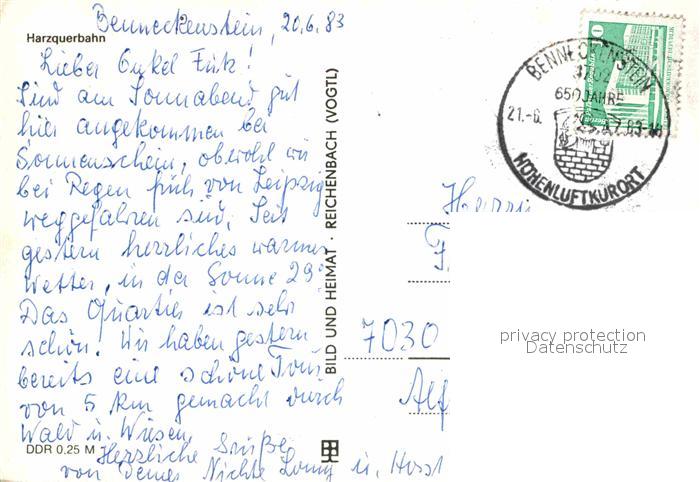 Benneckenstein, 20.6.83
Harzquerbahn
Lieber Onkel Fritz!
Sind am Sonnabend gut
hier angekommen bei
Sonnenschein, obwohl wir
bei Regen früh von Leipzig
weggefahren sind. Seit
gestern herrliches warmes
Wetter, in der Sonne 29°
Das Quartier ist sehr
schön. Wir haben gestern
bereits eine schöne Tour
von 5 km gemacht durch
Wald u. Wiesen.
Herzliche Grüße
von Deiner Nichte u. Horst
DDR 0.25 M
BILD UND HEIMAT · REICHENBACH (VOGTL)
BENNECKENSTEIN
650 JAHRE
21.-6.
HÖHENLUFTKURORT
Herrn
F.
7030
Alf
privacy protection
Datenschutz